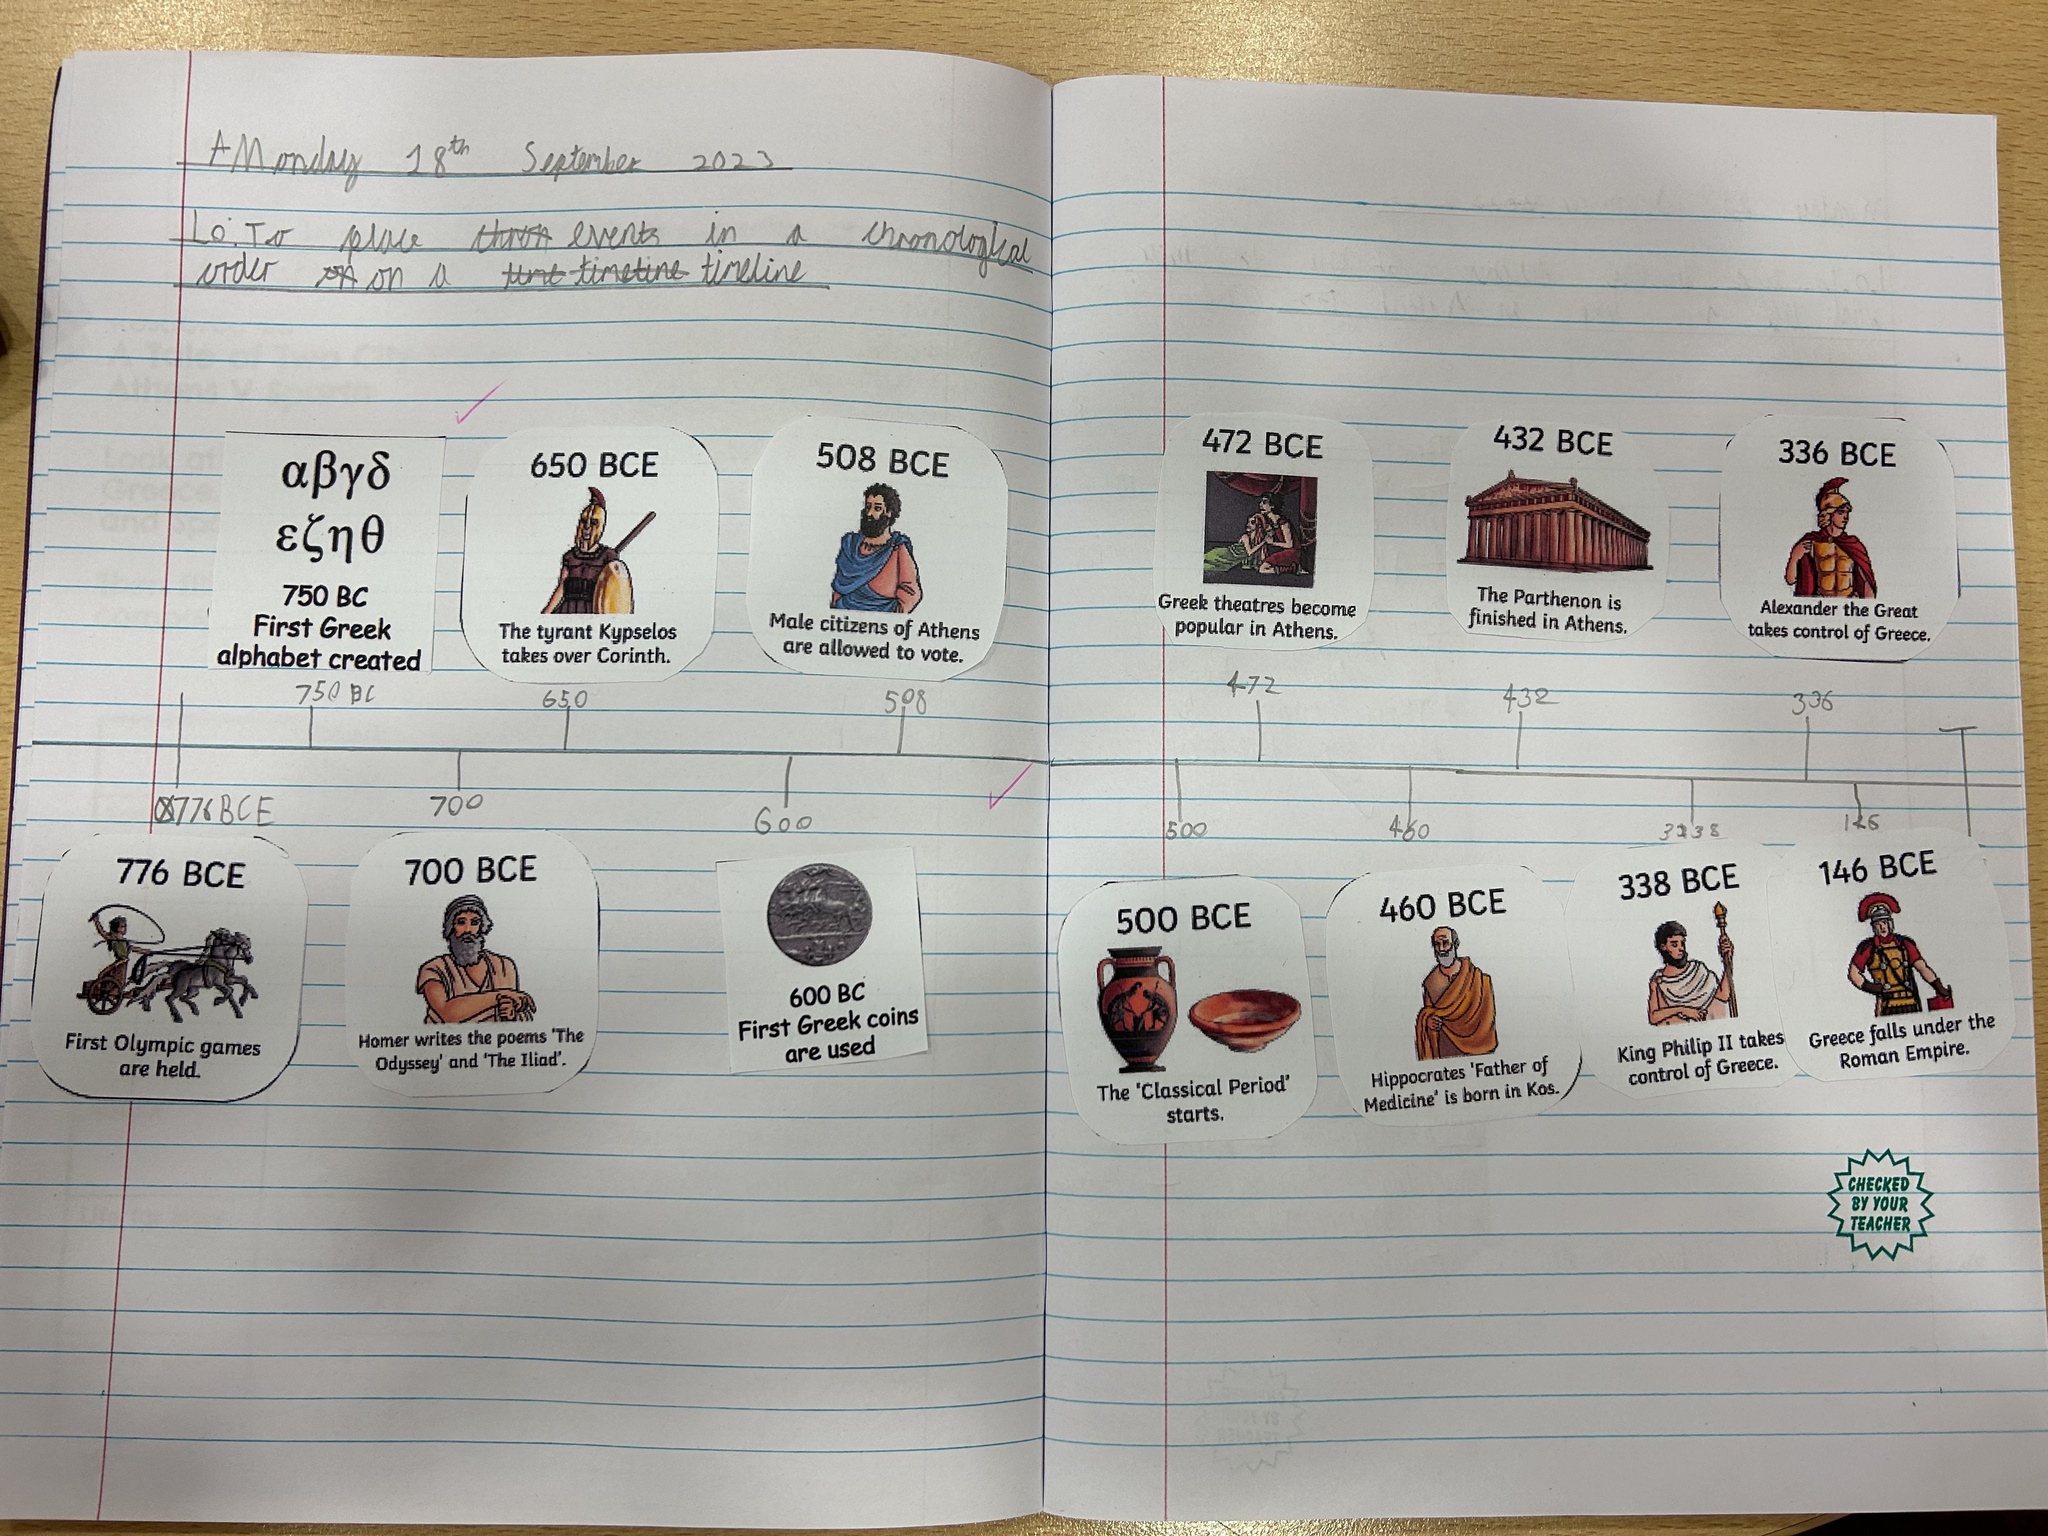 Monday 18th September 2023
Lo: To place events in a chronological
order on a timeline
αβγδ
εζηθ
750 BC
First Greek
alphabet created
650 BCE
The tyrant Kypselos
takes over Corinth.
508 BCE
Male citizens of Athens
are allowed to vote.
750 BC
650
508
776 BCE
700
600
776 BCE
First Olympic games
are held.
700 BCE
Homer writes the poems 'The
Odyssey' and 'The Iliad'.
600 BC
First Greek coins
are used
472 BCE
Greek theatres become
popular in Athens.
432 BCE
The Parthenon is
finished in Athens.
336 BCE
Alexander the Great
takes control of Greece.
472
432
336
500
460
338
146
500 BCE
The 'Classical Period'
starts.
460 BCE
Hippocrates 'Father of
Medicine' is born in Kos.
338 BCE
King Philip II takes
control of Greece.
146 BCE
Greece falls under the
Roman Empire.
CHECKED
BY YOUR
TEACHER